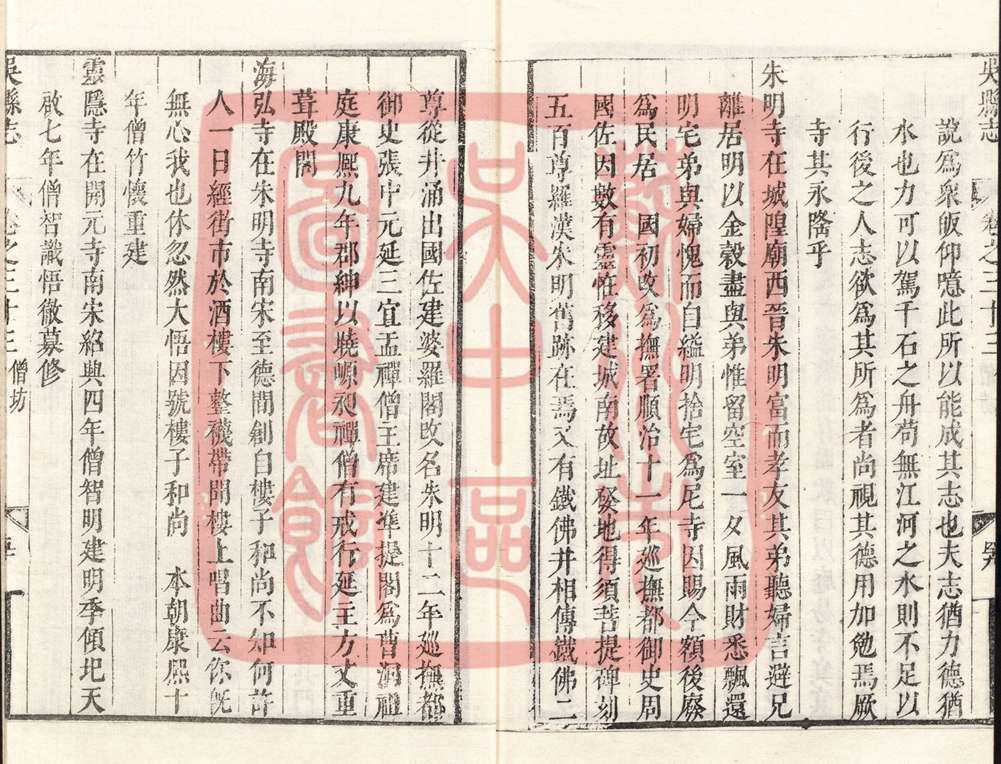 吳縣志
卷之三十三
說爲衆皈仰噫此所以能成其志也夫志猶力德猶
水也力可以駕千石之舟苟無江河之水則不足以
行後之人志欲爲其所爲者尚視其德用加勉焉厥
寺其永隆乎
朱明寺在城隍廟西晉朱明富而孝友其弟聽婦言避兄
離居明以金穀盡與弟惟留空室一夕風雨財悉飄還
明宅弟與婦愧而自縊明捨宅爲尼寺因賜今額後廢
爲民居 國初改爲撫署順治十一年巡撫都御史周
國佐因數有靈怪移建城南故址發地得須菩提碑刻
五百尊羅漢朱明舊跡在焉又有鐵佛井相傳鐵佛二
尊從井涌出國佐建婆羅閣改名朱明十二年巡撫都
御史張中元延三宜盂禪僧主席建準提閣爲曹洞禮
庭康熙九年郡紳以曉㟽昶禪僧有戒行延主方丈重
葺殿閣
海弘寺在朱明寺南宋至德間創自樓子和尚不知何許
人一日經街市於酒樓下整襪帶聞樓上唱曲云你既
無心我也休忽然大悟因號樓子和尚 本朝康熙十
年僧竹懷重建
靈隱寺在開元寺南宋紹興四年僧智明建明季傾圯天
啟七年僧智識悟徹募修
吳縣志
卷之三十三 僧坊
蘇州市
吳中區
圖書館